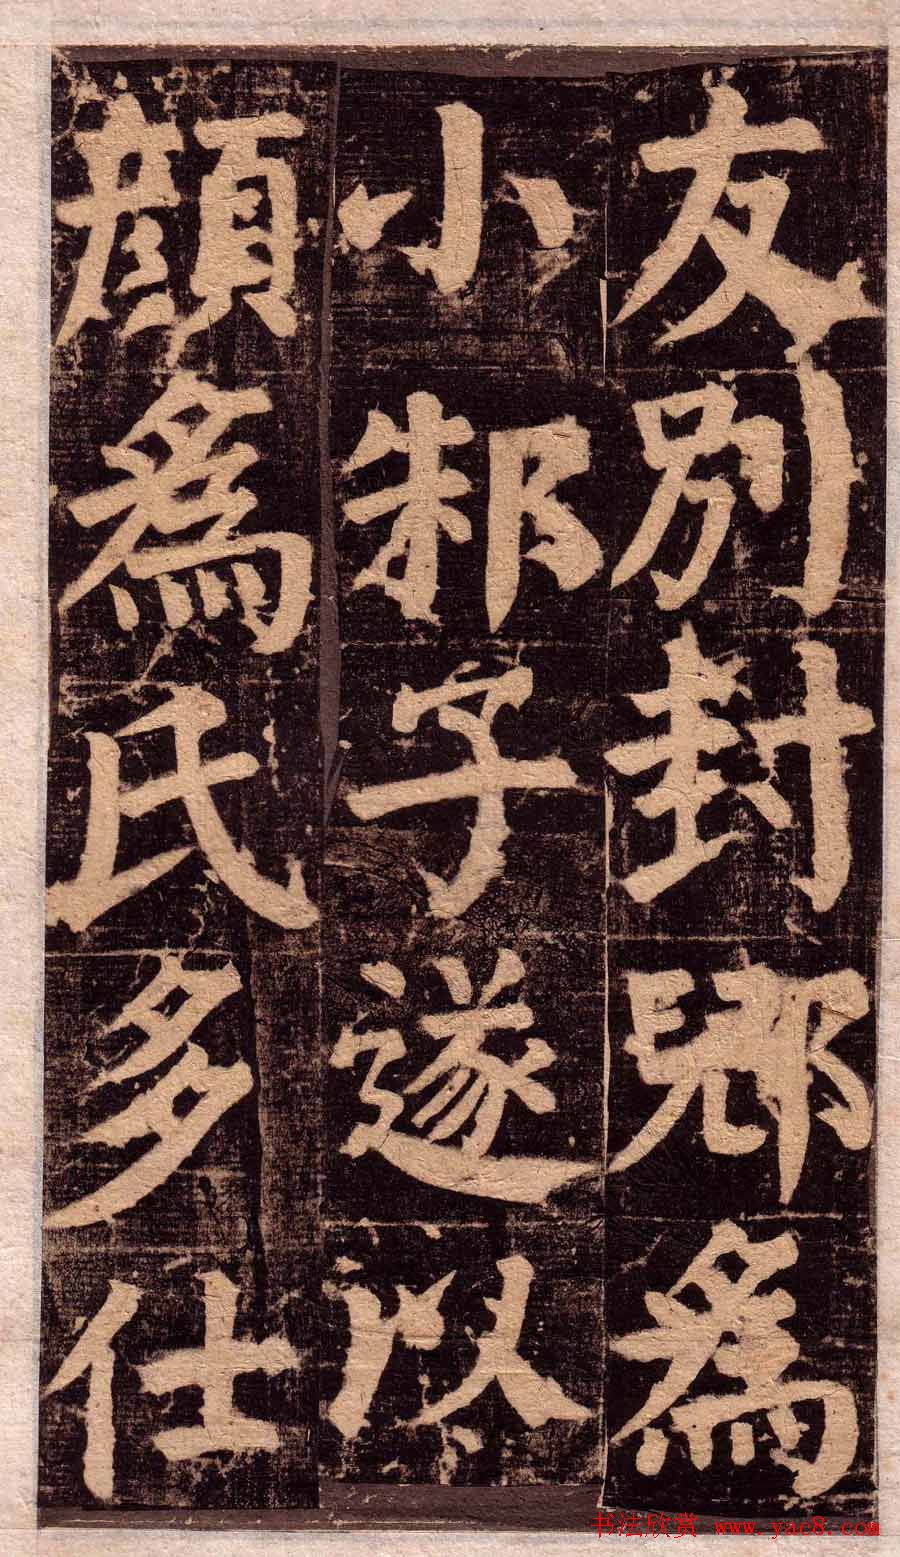 友別封郳為
小邾子遂以
顏為氏多仕
书法欣赏 www.yac8.com